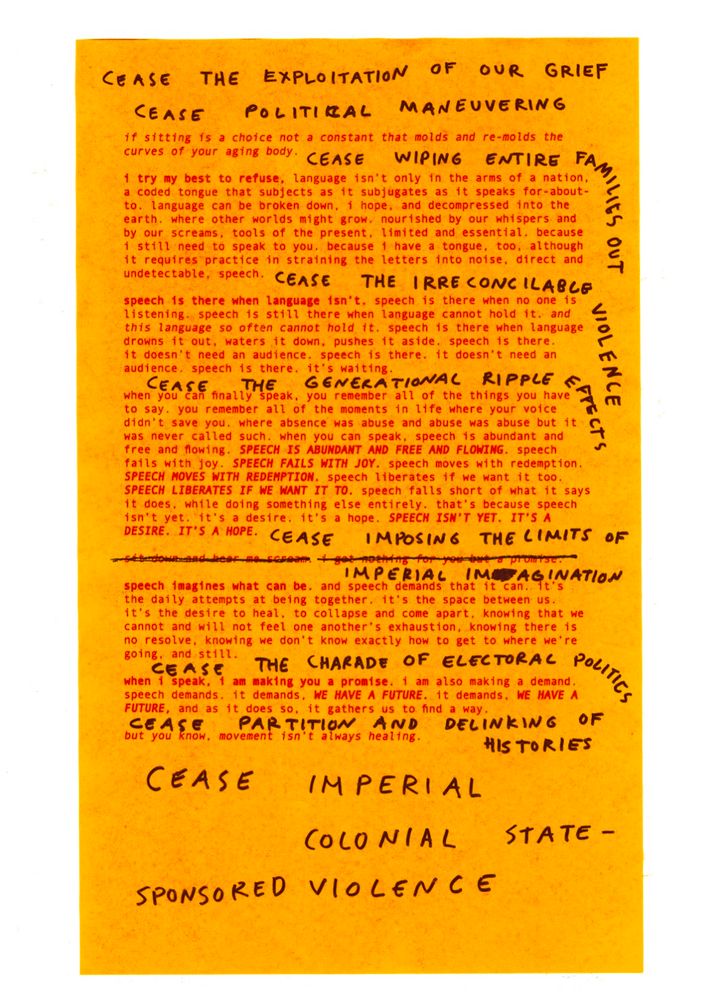 CEASE THE EXPLOITATION OF OUR GRIEF
CEASE POLITICAL MANEUVERING
if sitting is a choice not a constant that molds and re-molds the
curves of your aging body.
CEASE WIPING ENTIRE FAMILIES OUT
i try my best to refuse, language isn't only in the arms of a nation,
a coded tongue that subjects as it subjugates as it speaks for-about-
to. language can be broken down, i hope, and decompressed into the
earth. where other worlds might grow. nourished by our whispers and
by our screams, tools of the present, limited and essential. because
i still need to speak to you. because i have a tongue, too, although
it requires practice in straining the letters into noise, direct and
undetectable, speech.
CEASE THE IRRECONCILABLE VIOLENCE
speech is there when language isn't, speech is there when no one is
listening. speech is still there when language cannot hold it. and
this language so often cannot hold it. speech is there when language
drowns it out, waters it down, pushes it aside. speech is there.
it doesn't need an audience. speech is there. it doesn't need an
audience. speech is there. it's waiting.
CEASE THE GENERATIONAL RIPPLE EFFECTS
when you can finally speak, you remember all of the things you have
to say. you remember all of the moments in life where your voice
didn't save you. where absence was abuse and abuse was abuse but it
was never called such. when you can speak, speech is abundant and
free and flowing. SPEECH IS ABUNDANT AND FREE AND FLOWING. speech
fails with joy. SPEECH FAILS WITH JOY. speech moves with redemption.
SPEECH MOVES WITH REDEMPTION. speech liberates if we want it too.
SPEECH LIBERATES IF WE WANT IT TO. speech falls short of what it says
it does, while doing something else entirely. that's because speech
isn't yet. it's a desire. it's a hope. SPEECH ISN'T YET. IT'S A
DESIRE. IT'S A HOPE.
CEASE IMPOSING THE LIMITS OF
sit down and hear me scream. i got nothing for you but a promise.
IMPERIAL IMAGINATION
speech imagines what can be. and speech demands that it can. it's
the daily attempts at being together. it's the space between us.
it's the desire to heal, to collapse and come apart, knowing that we
cannot and will not feel one another's exhaustion, knowing there is
no resolve, knowing we don't know exactly how to get to where we're
going, and still.
CEASE THE CHARADE OF ELECTORAL POLITICS
when i speak, i am making you a promise. i am also making a demand.
speech demands. it demands, WE HAVE A FUTURE. it demands, WE HAVE A
FUTURE, and as it does so, it gathers us to find a way.
CEASE PARTITION AND DELINKING OF
but you know, movement isn't always healing.
HISTORIES
CEASE IMPERIAL
COLONIAL STATE-
SPONSORED VIOLENCE